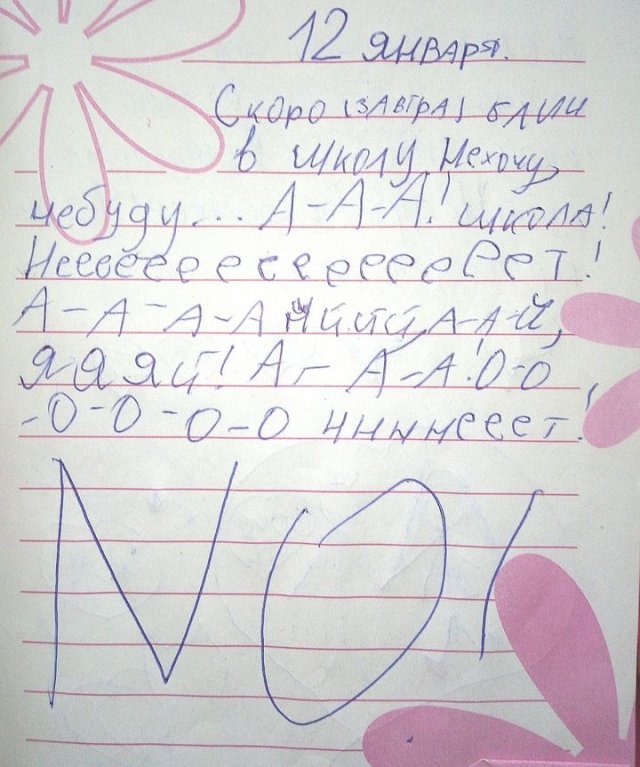 12 января.
Скоро (завтра) блин
в школу Нехочу,
небуду... А-А-А! школа!
Нееееееееееееееет!
А-А-А-А Ййййй А-А-й,
я я яй! А-А-А!О-О
-О-О-О-О ннннееет!
NO!